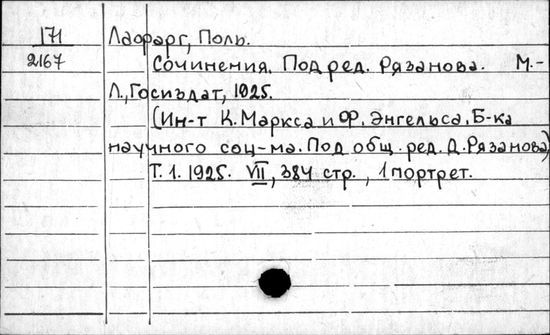 171 Лафарг, Поль.
2167 Сочинения. Под ред. Рязанова. М.-
Л., Госиздат, 1925.
(Ин-т К. Маркса и Ф. Энгельса. Б-ка
научного соц-ма. Под общ. ред. Д. Рязанова)
Т. 1. 1925. VII, 384 стр., 1 портрет.